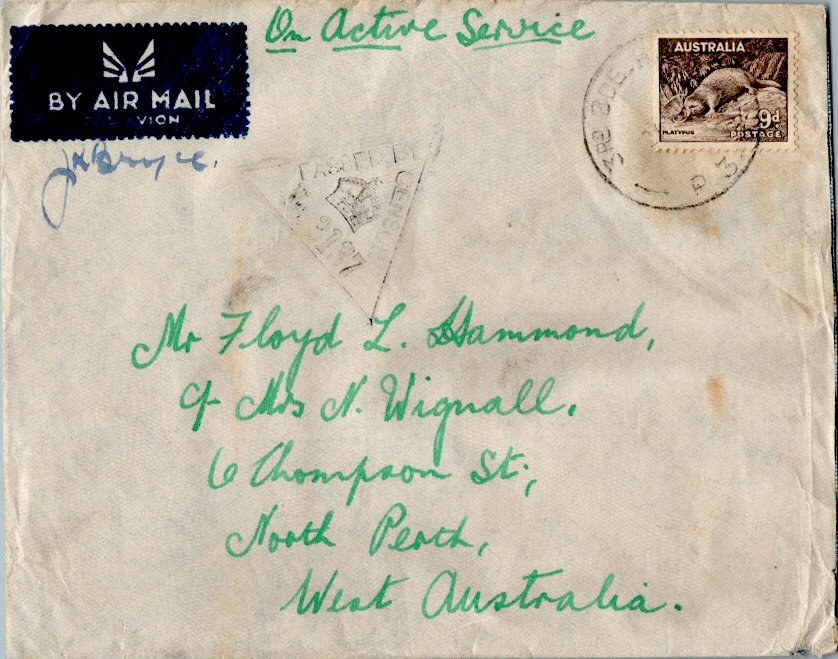 On Active Service
BY AIR MAIL
VION
AUSTRALIA
PLATYPUS
9d
POSTAGE
3RD BDE
PASSED BY
CENSOR
Mr Floyd L. Hammond,
c/- Mrs N. Wignall.
6 Thompson St.,
North Perth,
West Australia.